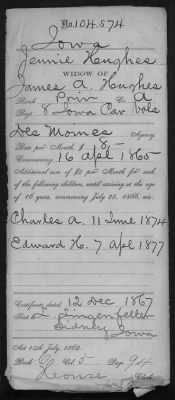 No. 104.574
Iowa
Jennie Hughes
WIDOW OF
James A. Hughes
Rank Priv Co. A
Regt 8 Iowa Cav Vols
Des Moines Agency
Rate per Month, $ 8.-
Commencing 16 Apl 1865
Additional sum of $2 per Month for each
of the following children, until arriving at the age
of 16 years, commencing July 25, 1866, viz:
Charles A. 11 June 1874
Edward H. 7 Apl 1877
Certificate dated 12 Dec 1867
Sent
Sidney Iowa
Act 14th July, 1862.
Book Vol. 5 Page 94
Clerk.